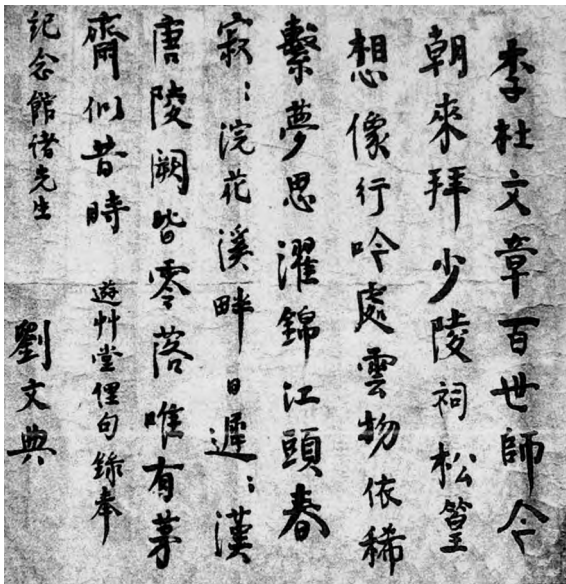 李杜文章百世師今
朝來拜少陵祠松篁
想像行吟處雲物依稀
繫夢思濯錦江頭春
寂：浣花溪畔日遲：漢
唐陵闕皆零落唯有茅
齋似昔時　遊艸堂俚句錄奉
紀念館諸先生　劉文典